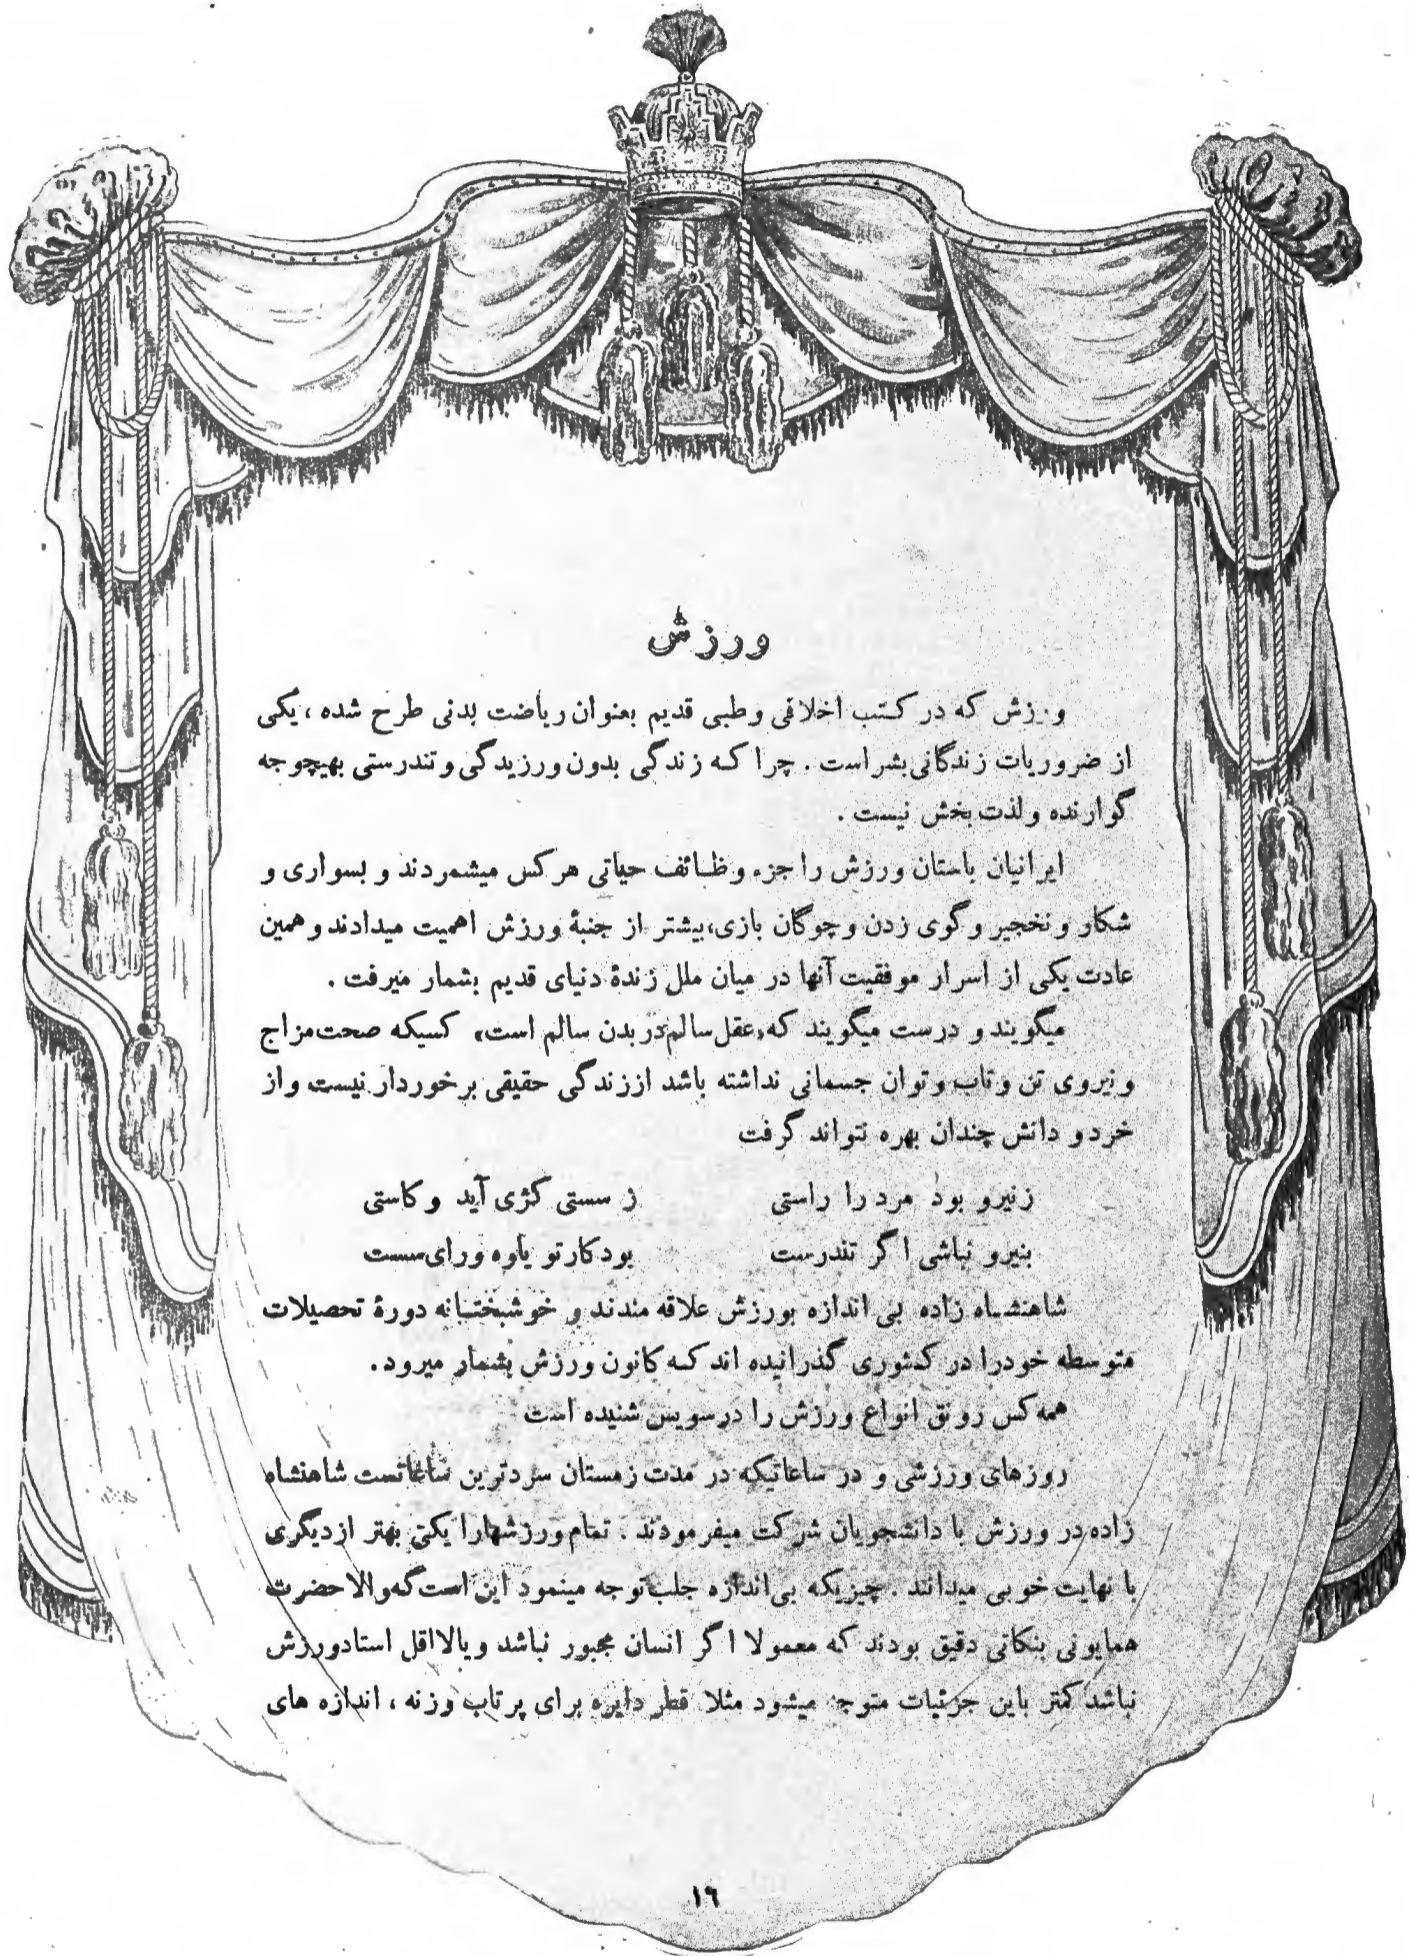 ورزش
ورزش که در کتب اخلاقی و طبی قدیم بعنوان ریاضت بدنی طرح شده ، یکی
از ضروریات زندگانی بشر است . چرا که زندگی بدون ورزیدگی و تندرستی بهیچوجه
گوارنده ولذت بخش نیست .
ایرانیان باستان ورزش را جزء وظائف حیاتی هرکس میشمردند و بسواری و
شکار و نخجیر و گوی زدن و چوگان بازی، بیشتر از جنبۀ ورزش اهمیت میدادند و همین
عادت یکی از اسرار موفقیت آنها در میان ملل زندۀ دنیای قدیم بشمار میرفت .
میگویند و درست میگویند که «عقل سالم در بدن سالم است» کسیکه صحت مزاج
و نیروی تن و تاب و توان جسمانی نداشته باشد از زندگی حقیقی برخوردار نیست و از
خرد و دانش چندان بهره نتواند گرفت
زنیرو بود مرد را راستی ز سستی کژی آید و کاستی
بنیرو نباشی اگر تندرست بود کارتو یاوه ورای سست
شاهنشاه زاده بی اندازه بورزش علاقه مندند و خوشبختانه دورۀ تحصیلات
متوسطه خودرا در کشوری گذرانیده اند که کانون ورزش بشمار میرود .
همه کس رونق انواع ورزش را در سویس شنیده است
روزهای ورزشی و در ساعاتیکه در مدت زمستان سردترین ساعاتست شاهنشاه
زاده در ورزش با دانشجویان شرکت میفرمودند . تمام ورزشهارا یکی بهتر از دیگری
با نهایت خوبی میدانند . چیزیکه بی اندازه جلب توجه مینمود این است که والاحضرت
همایونی بنکاتی دقیق بودند که معمولا اگر انسان مجبور نباشد و یالااقل استاد ورزش
نباشد کمتر باین جزئیات متوجه میشود مثلا قطر دایره برای پرتاب وزنه ، اندازه های
١٦